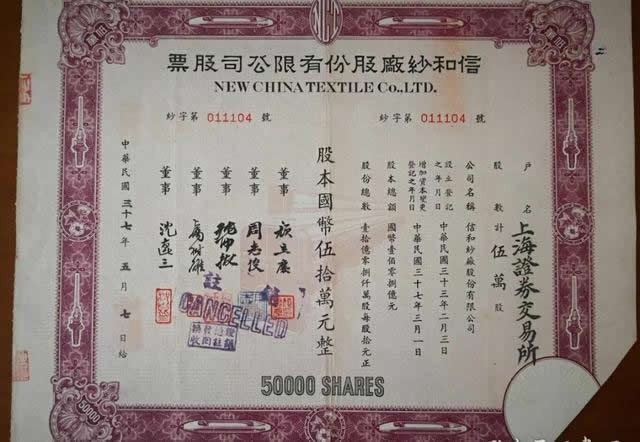 信和紗廠股份有限公司股票
NEW CHINA TEXTILE Co., LTD.
紗字第 011104 號
紗字第 011104 號
戶名 上海證券交易所
股數計 伍萬 股
公司名稱 信和紗廠股份有限公司
設立登記之年月日 中華民國三十三年二月三日
增加資本變更登記之年月日 中華民國三十七年三月一日
股本總額 國幣壹佰零捌億元
股份總數 壹拾億零捌仟萬股每股拾元正
股本國幣伍拾萬元整
董事
董事 周志俊
董事
董事
董事 沈遠三
中華民國三十七年五月七日給
CANCELLED
50000 SHARES
50000